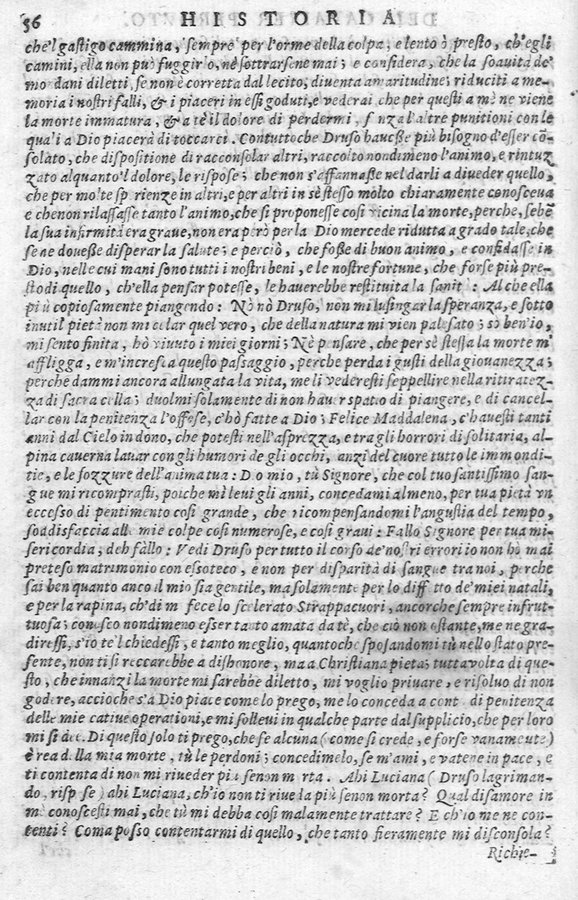 36 HISTORIA
che'l gastigo cammina, sempre per l'orme della colpa, e lento ò presto, ch'egli
camini, ella non può fuggirlo, nè sottrarsene mai; e considera, che la soauità de'
mondani diletti, se non è corretta dal lecito, diuenta amaritudine; riduciti a me-
moria i nostri falli, & i piaceri in essi goduti, e vederai che per questi a mè ne viene
la morte immatura, & a tè il dolore di perdermi, senza l'altre punitioni con le
quali a Dio piacerà di toccarci. Contuttoche Druso hauesse più bisogno d'esser cō-
solato, che dispositione di racconsolar altri, raccolto nondimeno l'animo, e rintuz
zato alquanto'l dolore, le rispose; che non s'affannasse nel darli a diueder quello,
che per molte sperienze in altri, e per altri in sè stesso molto chiaramente conosceua
e che non rilassasse tanto l'animo, che si proponesse così vicina la morte, perche, sebē
la sua infirmità era graue, non era però per la Dio mercede ridutta a grado tale, che
se ne douesse disperar la salute; e perciò, che fosse di buon animo, e confidasse in
Dio, nelle cui mani sono tutti i nostri beni, e le nostre fortune, che forse più pre-
sto di quello, ch'ella pensar potesse, le hauerebbe restituita la sanità: Al che ella
più copiosamente piangendo: Nò nò Druso, non mi lusingar la speranza, e sotto
inutil pietà non mi celar quel vero, che della natura mi vien palesato; sò ben'io,
mi sento finita, hò viuuto i miei giorni; Nè pensare, che per sè stessa la morte m'
affligga, e m'incresca questo passaggio, perche perda i gusti della giouanezza;
perche dammi ancora allungata la vita, me li vederesti seppellire nella ritiratez-
za di sacra cella; duolmi solamente di non hauer spatio di piangere, e di cancel-
lar con la penitenza l'offese, c'hò fatte a Dio; Felice Maddalena, c'hauesti tanti
anni dal Cielo in dono, che potesti nell'asprezza, e tra gli horrori di solitaria, al-
pina cauerna lauar con gli humori de gli occhi, anzi del cuore tutte le immondi-
tie, e le sozzure dell'anima tua: Dio mio, tù Signore, che col tuo santissimo san-
gue mi ricomprasti, poiche mi leui gli anni, concedami almeno, per tua pietà vn
eccesso di pentimento così grande, che ricompensandomi l'angustia del tempo,
soddisfaccia alle mie colpe così numerose, e così graui: Fallo Signore per tua mi-
sericordia, deh fàllo: Vedi Druso per tutto il corso de' nostri errori io non hò mai
preteso matrimonio con essoteco, e non per disparità di sangue tra noi, perche
sai ben quanto anco il mio sia gentile, ma solamente per lo difetto de' miei natali,
e per la rapina, ch'di me fece lo scelerato Strappacuori, ancorche sempre infrut-
tuosa; conosco nondimeno esser tanto amata da tè, che ciò non ostante, me ne gra-
diressi, s'io te'l chiedessi, e tanto meglio, quantoche sposandomi tù nello stato pre-
sente, non ti si reccarebbe a dishonore, ma a Christiana pietà; tutta volta di que-
sto, che innanzi la morte mi sarebbe diletto, mi voglio priuare, e risoluo di non
godere, accioche s'a Dio piace come lo prego, me lo conceda a conto di penitenza
delle mie catiue operationi, e mi solleui in qualche parte dal supplicio, che per loro
mi si dee. Di questo solo ti prego, che se alcuna (come si crede, e forse vanamente)
è rea della mia morte, tù le perdoni; concedimelo, se m'ami, e vatene in pace, e
ti contenta di non mi riueder più senon morta. Ahi Luciana (Druso lagriman-
do, rispose) ahi Luciana, ch'io non ti riueda più senon morta? Qual disamore in
mè conoscesti mai, che tù mi debba così malamente trattare? E ch'io me ne con-
tenti? Coma posso contentarmi di quello, che tanto fieramente mi disconsola?
Richie-